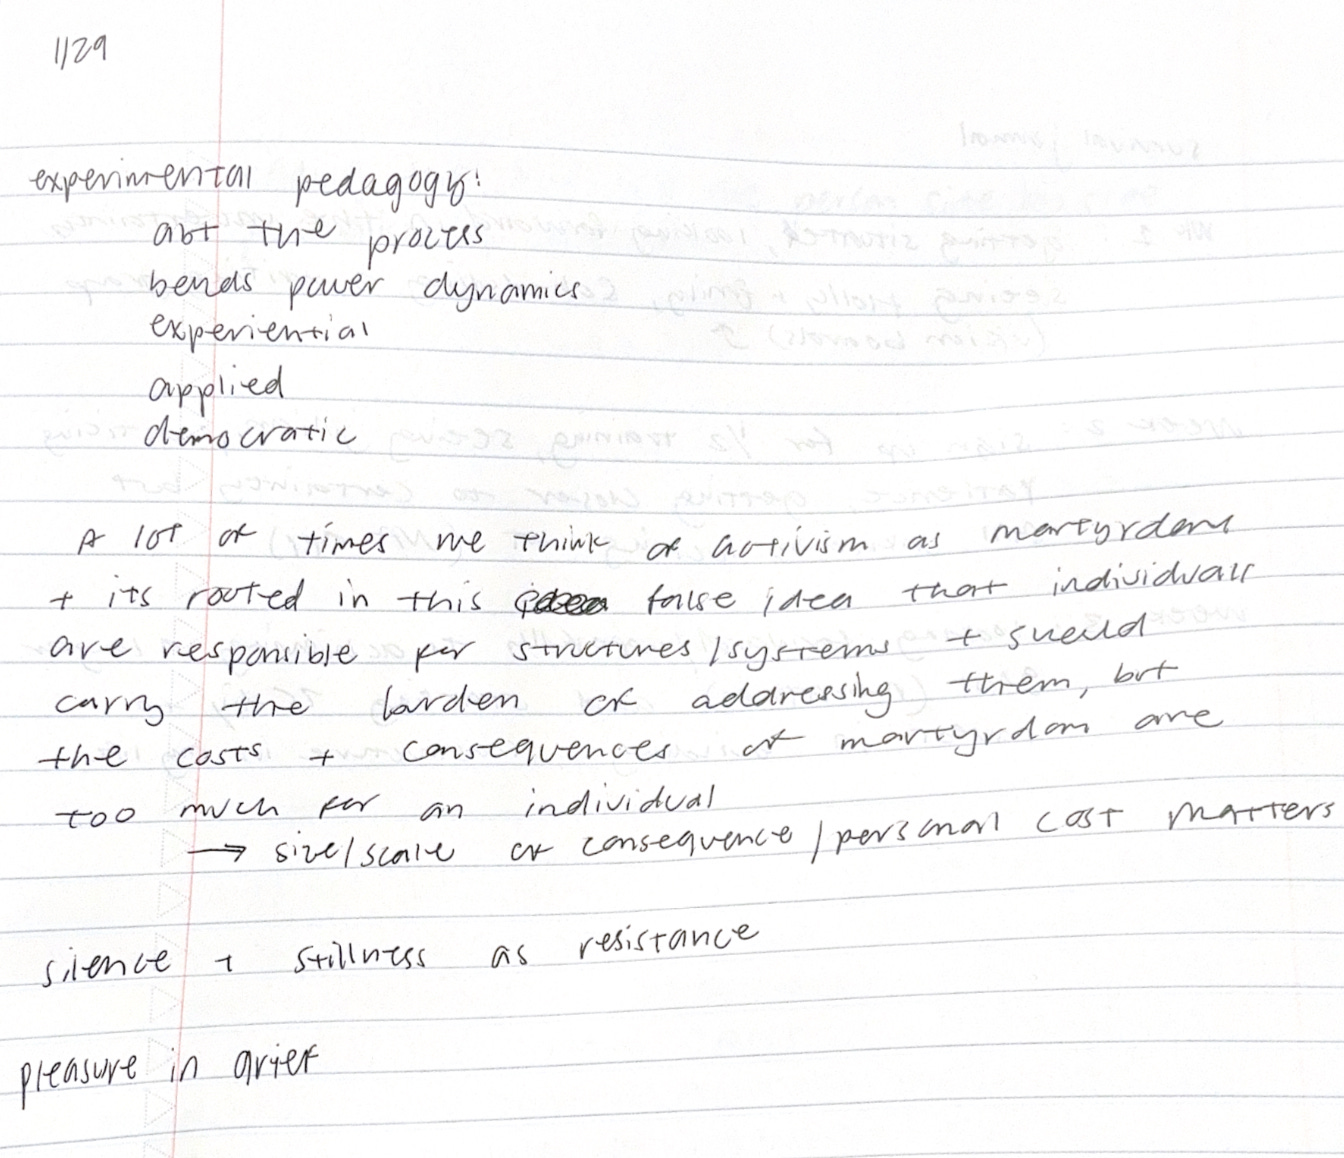 1/29
experimental pedagogy:
abt the process
bends power dynamics
experiential
applied
democratic
A lot of times we think of activism as martyrdom
+ its rooted in this false idea that individuals
are responsible for structures/systems + should
carry the burden of addressing them, but
the costs + consequences of martyrdom are
too much for an individual
→ size/scale of consequence/personal cost matters
silence + stillness as resistance
pleasure in grief